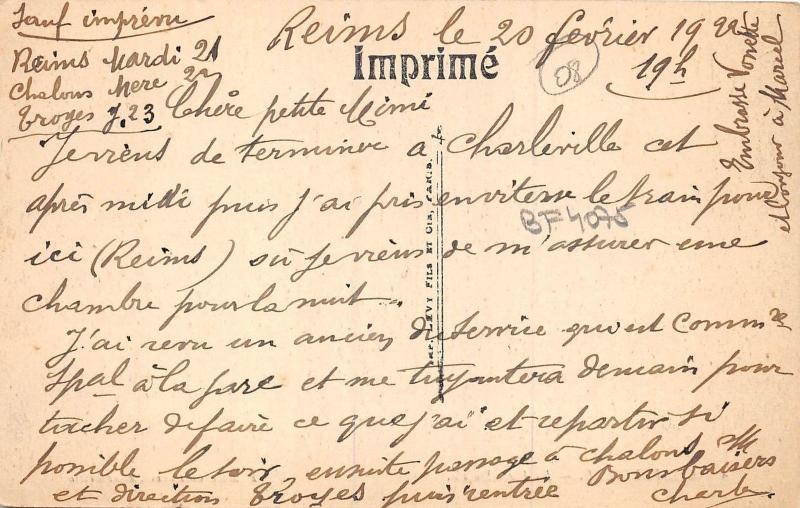 Sauf imprévu
Reims Mardi 21
Chalons Mere 22
Troyes J. 23
Reims le 20 février 1922
19h
Imprimé
08
Chère petite Mimi
Je viens de terminer a Charleville cet
après midi puis j'ai pris en vitesse le train pour
ici (Reims) où je viens de m'assurer une
chambre pour la nuit.
J'ai revu un ancien du service qui est Commre
Spal à la gare et me demain pour
tacher de faire ce que j'ai et repartir si
possible le soir, ensuite passage à Chalons
et direction Troyes puis rentrée
Bons baisers
Charles
Embrasse Vonette
et bonjour à Marcel
BF4075
LEVY FILS ET CIE, PARIS.